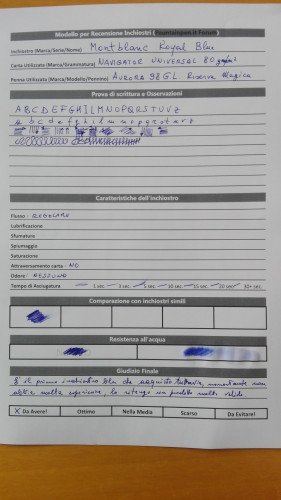 Modello per Recensione Inchiostri (Fountainpen.it Forum)
Inchiostro (Marca/Serie/Nome) Montblanc Royal Blue
Carta Utilizzata (Marca/Grammatura) NAVIGATOR UNIVERSAL 80
Penna Utilizzata (Marca/Modello/Pennino) AURORA 98GL Riserva Magica
Prova di scrittura e Osservazioni
A B C D E F G H I L M N O P Q R S T U V Z
a b c d e f g h i l m n o p q r s t u v z
Caratteristiche dell'inchiostro
Flusso : REGOLARE
Lubrificazione
Sfumature
Spiumaggio
Saturazione
Attraversamento carta : NO
Odore : NESSUNO
Tempo di Asciugatura 1 sec. 3 sec. 5 sec. 10 sec. 15 sec. 20 sec. 30+ sec.
Comparazione con inchiostri simili
Resistenza all'acqua
Giudizio Finale
il primo inchiostro blu che acquisto
altre molte esperienze, lo ritengo un prodotto molto valido.
X Da Avere! Ottimo Nella Media Scarso Da Evitare!